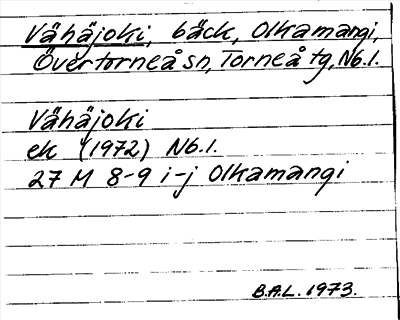 Vähäjoki, bäck, Olkamangi,
Övertorneå sn, Torneå tg, Nb. l.
Vähäjoki
ek (1972) Nb. l.
27 M 8-9 i-j Olkamangi
B.A.L. 1973.